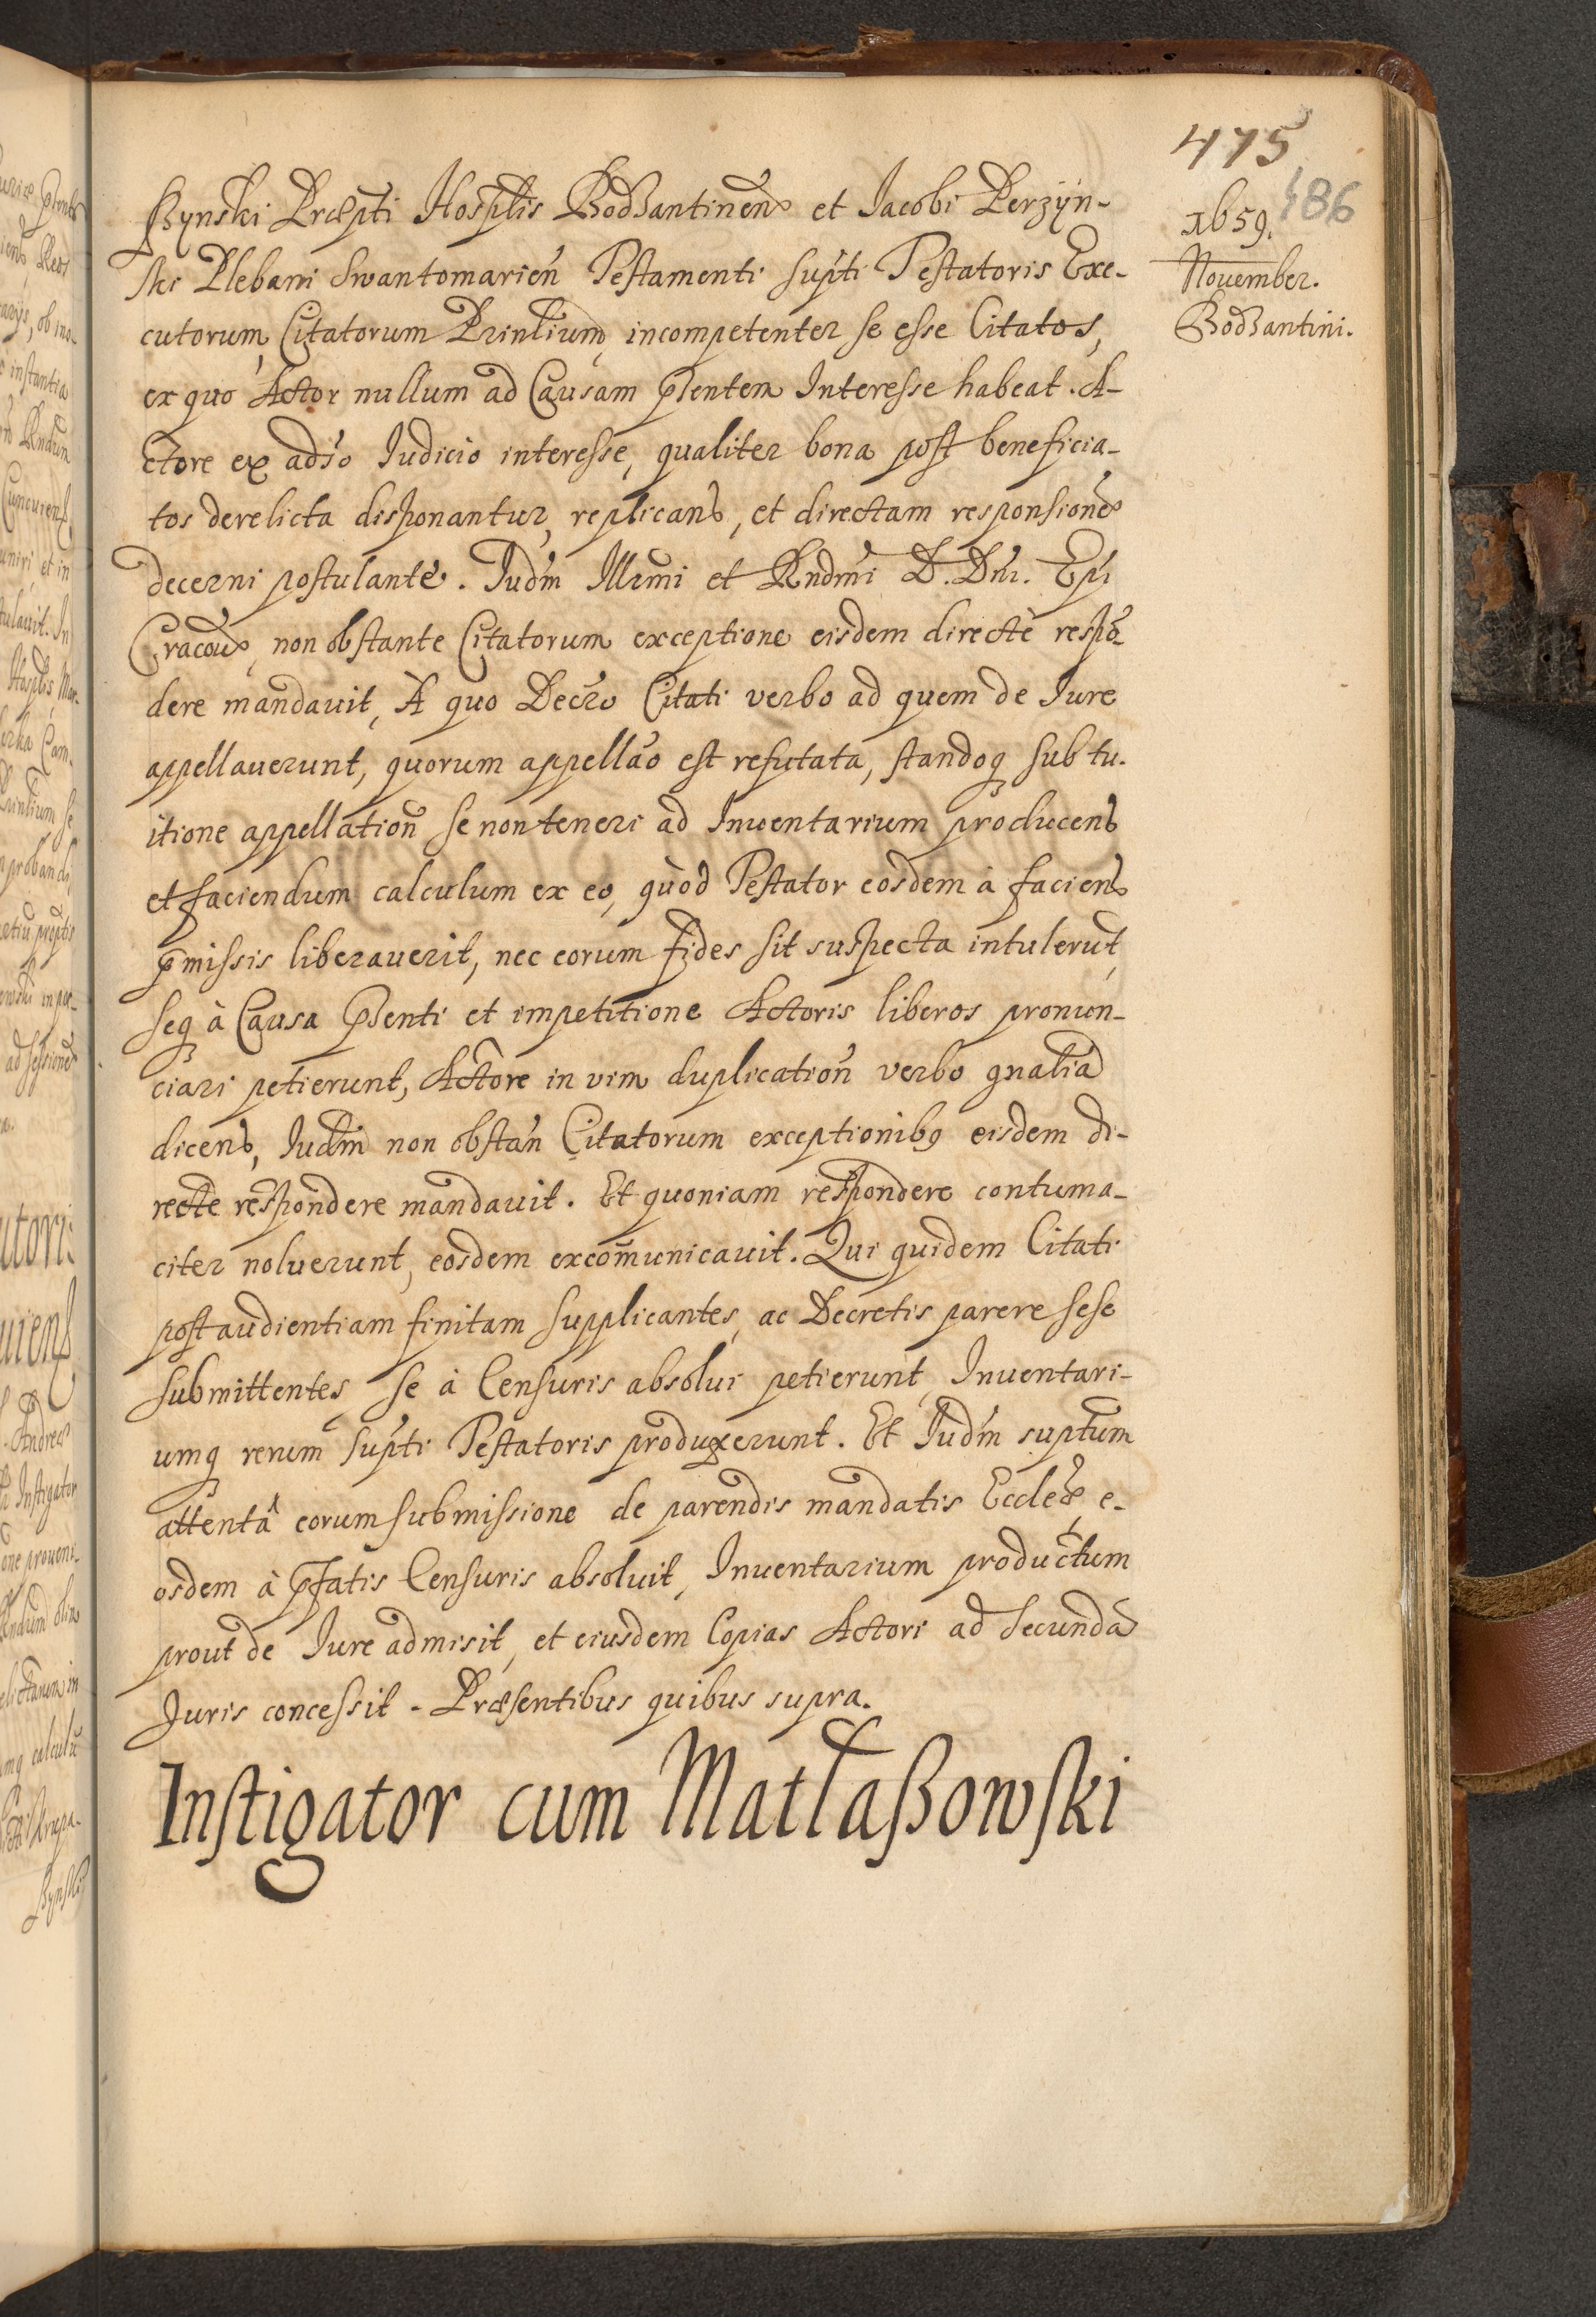 475
486
1659.
November.
Bodzantini.
ßynski Præpti Hosplis Bodzantinen et Iacobi Perzyn-
ski Plebani Swantomarien Testamenti supti Testatoris Exe-
cutorum, Citatorum Prinlium, incompetenter se esse Citatos,
ex quo Actor nullum ad Causam pſentem Interesse habeat. A-
ctore ex adſo Iudicio interesse, qualiter bona post beneficia-
tos derelicta disponantur, replicans, et directam responsione
decerni postulante. Iudm Illrmi et Rndmi D. Dni. Epi
Cracou, non obstante Citatorum exceptione eisdem directè respõ
dere mandauit, A quo Decro Citati verbo ad quem de Iure
appellauerunt, quorum appellao est refutata, standoq sub tu-
itione appellation se non teneri ad Inuentarium producens
et faciendum calculum ex eo, quòd Testator eosdem à faciens
pmissis liberauerit, nec eorum fides sit suspecta intulerut,
seq à Causa pſenti et impetitione Actoris liberos pronun-
ciari petierunt, Actore in vim duplication verbo gnalia
dicens, Iudm non obstan Citatorum exceptionibq eisdem di-
recte respondere mandauit. Et quoniam respondere contuma-
citer noluerunt, eosdem excomunicauit. Qui quidem Citati
post audientiam finitam supplicantes, ac Decretis parere sese
submittentes, se à Censuris absolui petierunt, Inuentari-
umq rerum supti Testatoris produxerunt. Et Iudm suptum
attentâ eorum submissione de parendis mandatis Eccleæ, e-
osdem à pfatis Censuris absoluit, Inuentarium productum
prout de Iure admisit, et eiusdem Copias Actori ad secunda
Iuris concessit - Præsentibus quibus supra.
Instigator cum Matlaßowski